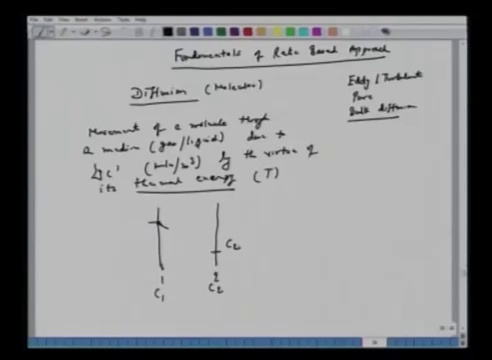 Fundamentals of Rate Based Approach
Diffusion (Molecular)
Eddy / Turbulent
Pore
Bulk diffusion
Movement of a molecule through
a medium (gas/liquid) due to
'C' (mole/m³) by the virtue of
its thermal energy (T)
C₂
1 2
C₁ C₂